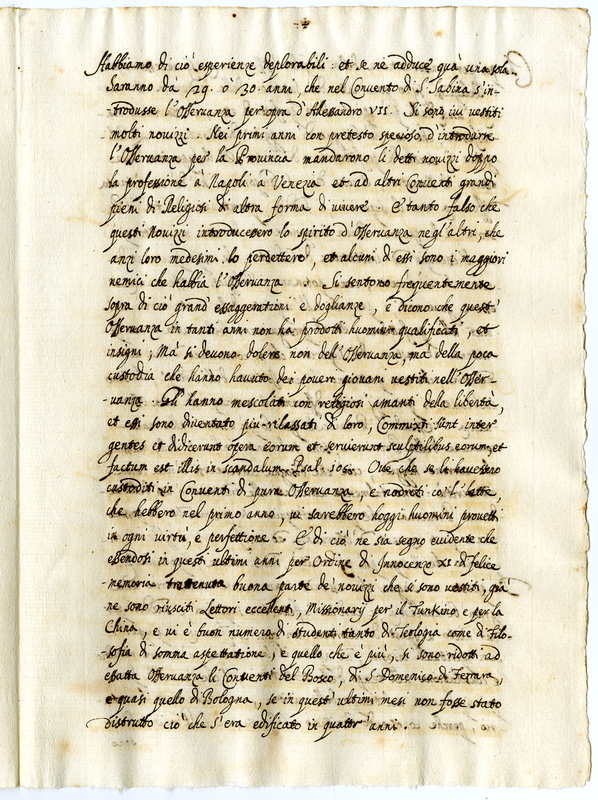 Habbiamo di ciò esperienze deplorabili: et se ne adduce quà una sola.
Saranno da 29. ò 30. anni, che nel Convento di S. Sabina s'in-
trodusse l'Osservanza per opra d'Alessandro VII. Si sono ivi vestiti
molti novizzi. Nei primi anni con pretesto specioso d'introdurre
l'Osservanza per la Provincia mandarono li detti novizzi doppo
la professione à Napoli à Venezia et ad altri Conventi grandi
pieni di Religiosi di altra forma di vivere. È tanto falso che
questi Novizzi introducessero lo spirito d'Osservanza negl'altri, che
anzi loro medesimi lo perdettero, et alcuni di essi sono i maggiori
nemici che habbia l'Osservanza. Si sentono frequentemente
sopra di ciò grand' essaggerationi e doglianze, e dicono che quest'
Osservanza in tanti anni non hà prodotti huomini qualificati, et
insigni; Mà si devono dolere non dell'Osservanza, mà della poca
custodia che hanno havuto dei poveri giovani vestiti nell'Osser-
vanza. Gli hanno mescolati con religiosi amanti della libertà,
et essi sono diventato più rilassati di loro, Commixti sunt inter
gentes et didicerunt opera eorum et servierunt sculptilibus eorum et
factum est illis in scandalum. Psal. 105. Ove che se li havessero
custoditi in Conventi di pura Osservanza, e nodriti co'l latte,
che hebbero nel primo anno, ui sarebbero hoggi huomini provetti
in ogni virtù, e perfettione. E di ciò ne sia segno evidente che
essendosi in questi ultimi anni per Ordine di Innocenzo XI di felice
memoria trattenuta buona parte de' novizzi che si sono vestiti, già
ne sono riusciti Lettori eccellenti, Missionarij per il Tunkino e per la
China, e vi è buon numero di studenti tanto di Teologia come di Filo-
sofia di somma aspettatione, e quello che è più, si sono ridotti ad
esatta Osservanza li Conventi del Bosco, di S. Domenico di Ferrara,
e quasi quello di Bologna, se in quest' ultimi mesi non fosse stato
distrutto ciò che s'era edificato in quattr'anni